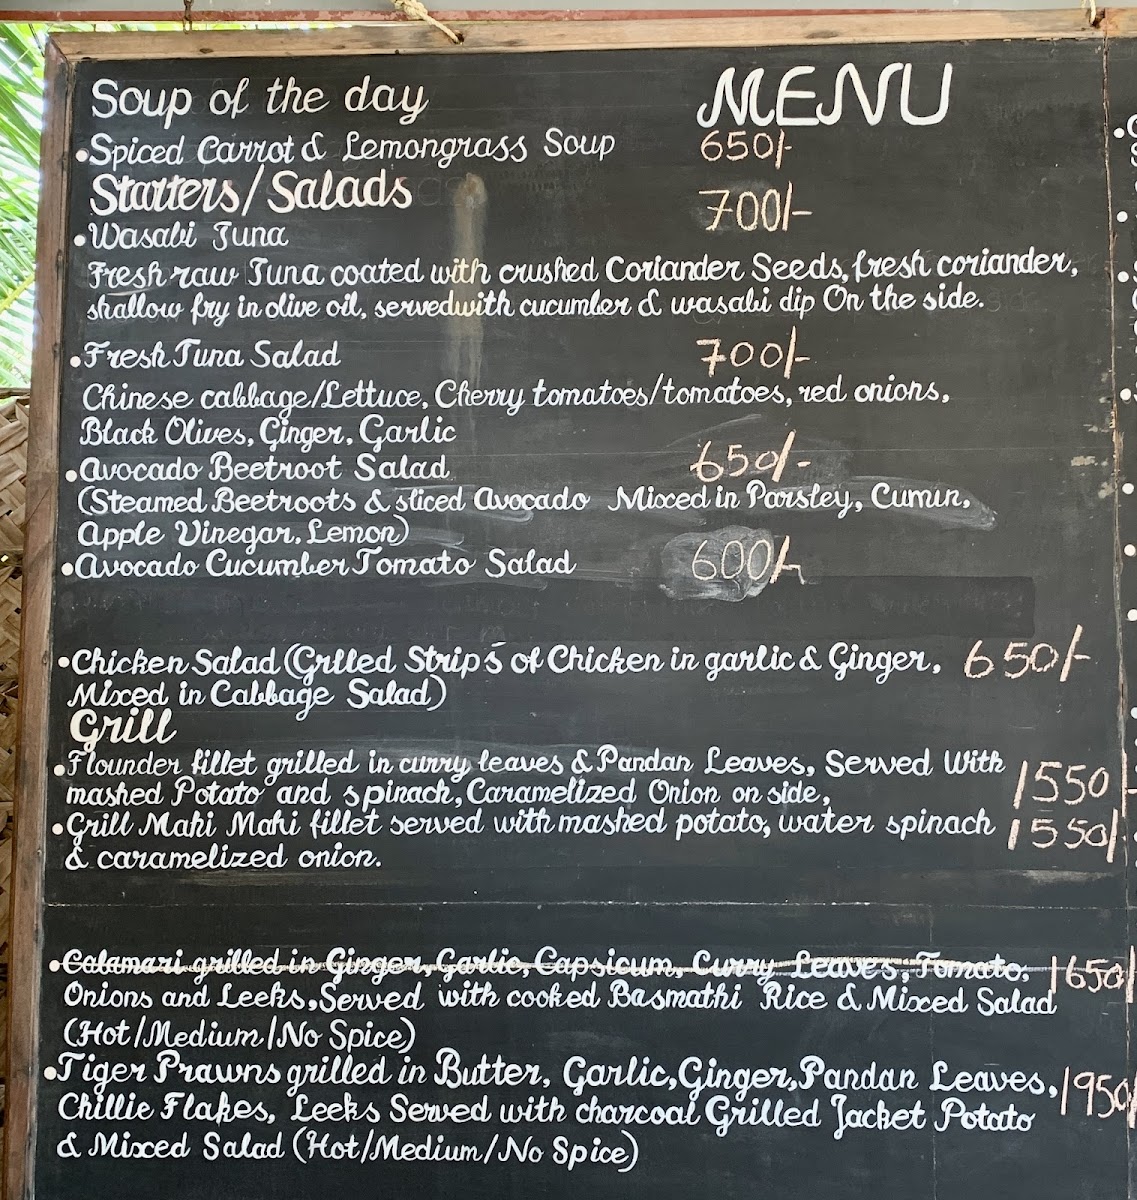 Soup of the day MENU
•Spiced Carrot & Lemongrass Soup 650/-
Starters/Salads 700/-
•Wasabi Tuna
Fresh raw Tuna coated with crushed Coriander Seeds, fresh coriander,
shallow fry in olive oil, served with cucumber & wasabi dip On the side.
•Fresh Tuna Salad 700/-
Chinese cabbage/Lettuce, Cherry tomatoes/tomatoes, red onions,
Black Olives, Ginger, Garlic
•Avocado Beetroot Salad 650/-
(Steamed Beetroots & sliced Avocado Mixed in Parsley, Cumin,
Apple Vinegar, Lemon)
•Avocado Cucumber Tomato Salad 600/-
•Chicken Salad (Grlled Strip's of Chicken in garlic & Ginger, 650/-
Mixed in Cabbage Salad)
Grill
•Flounder fillet grilled in curry leaves & Pandan Leaves, Served With 1550/-
mashed Potato and spinach, Caramelized Onion on side,
•Grill Mahi Mahi fillet served with mashed potato, water spinach 1550/-
& caramelized onion.
•Calamari grilled in Ginger, Garlic, Capsicum, Curry Leaves, Tomato, 1650/
Onions and Leeks, Served with cooked Basmathi Rice & Mixed Salad
(Hot/Medium/No Spice)
•Tiger Prawns grilled in Butter, Garlic, Ginger, Pandan Leaves, 1950/
Chillie Flakes, Leeks Served with charcoal Grilled Jacket Potato
& Mixed Salad (Hot/Medium/No Spice)